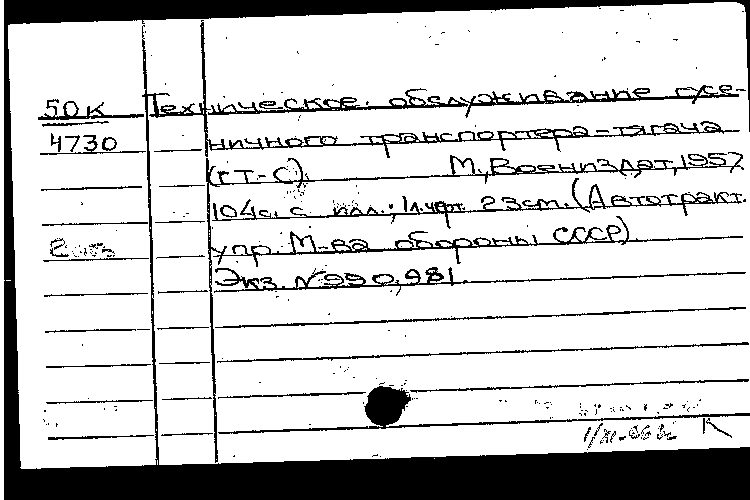 50К Техническое обслуживание гусе-
4730 ничного транспортера-тягача
(ГТ-С). М., Воениздат, 1957.
104с. с илл.; 1л.черт 23cm. (Автотракт.
упр. М-ва обороны СССР).
Экз. №990,981.